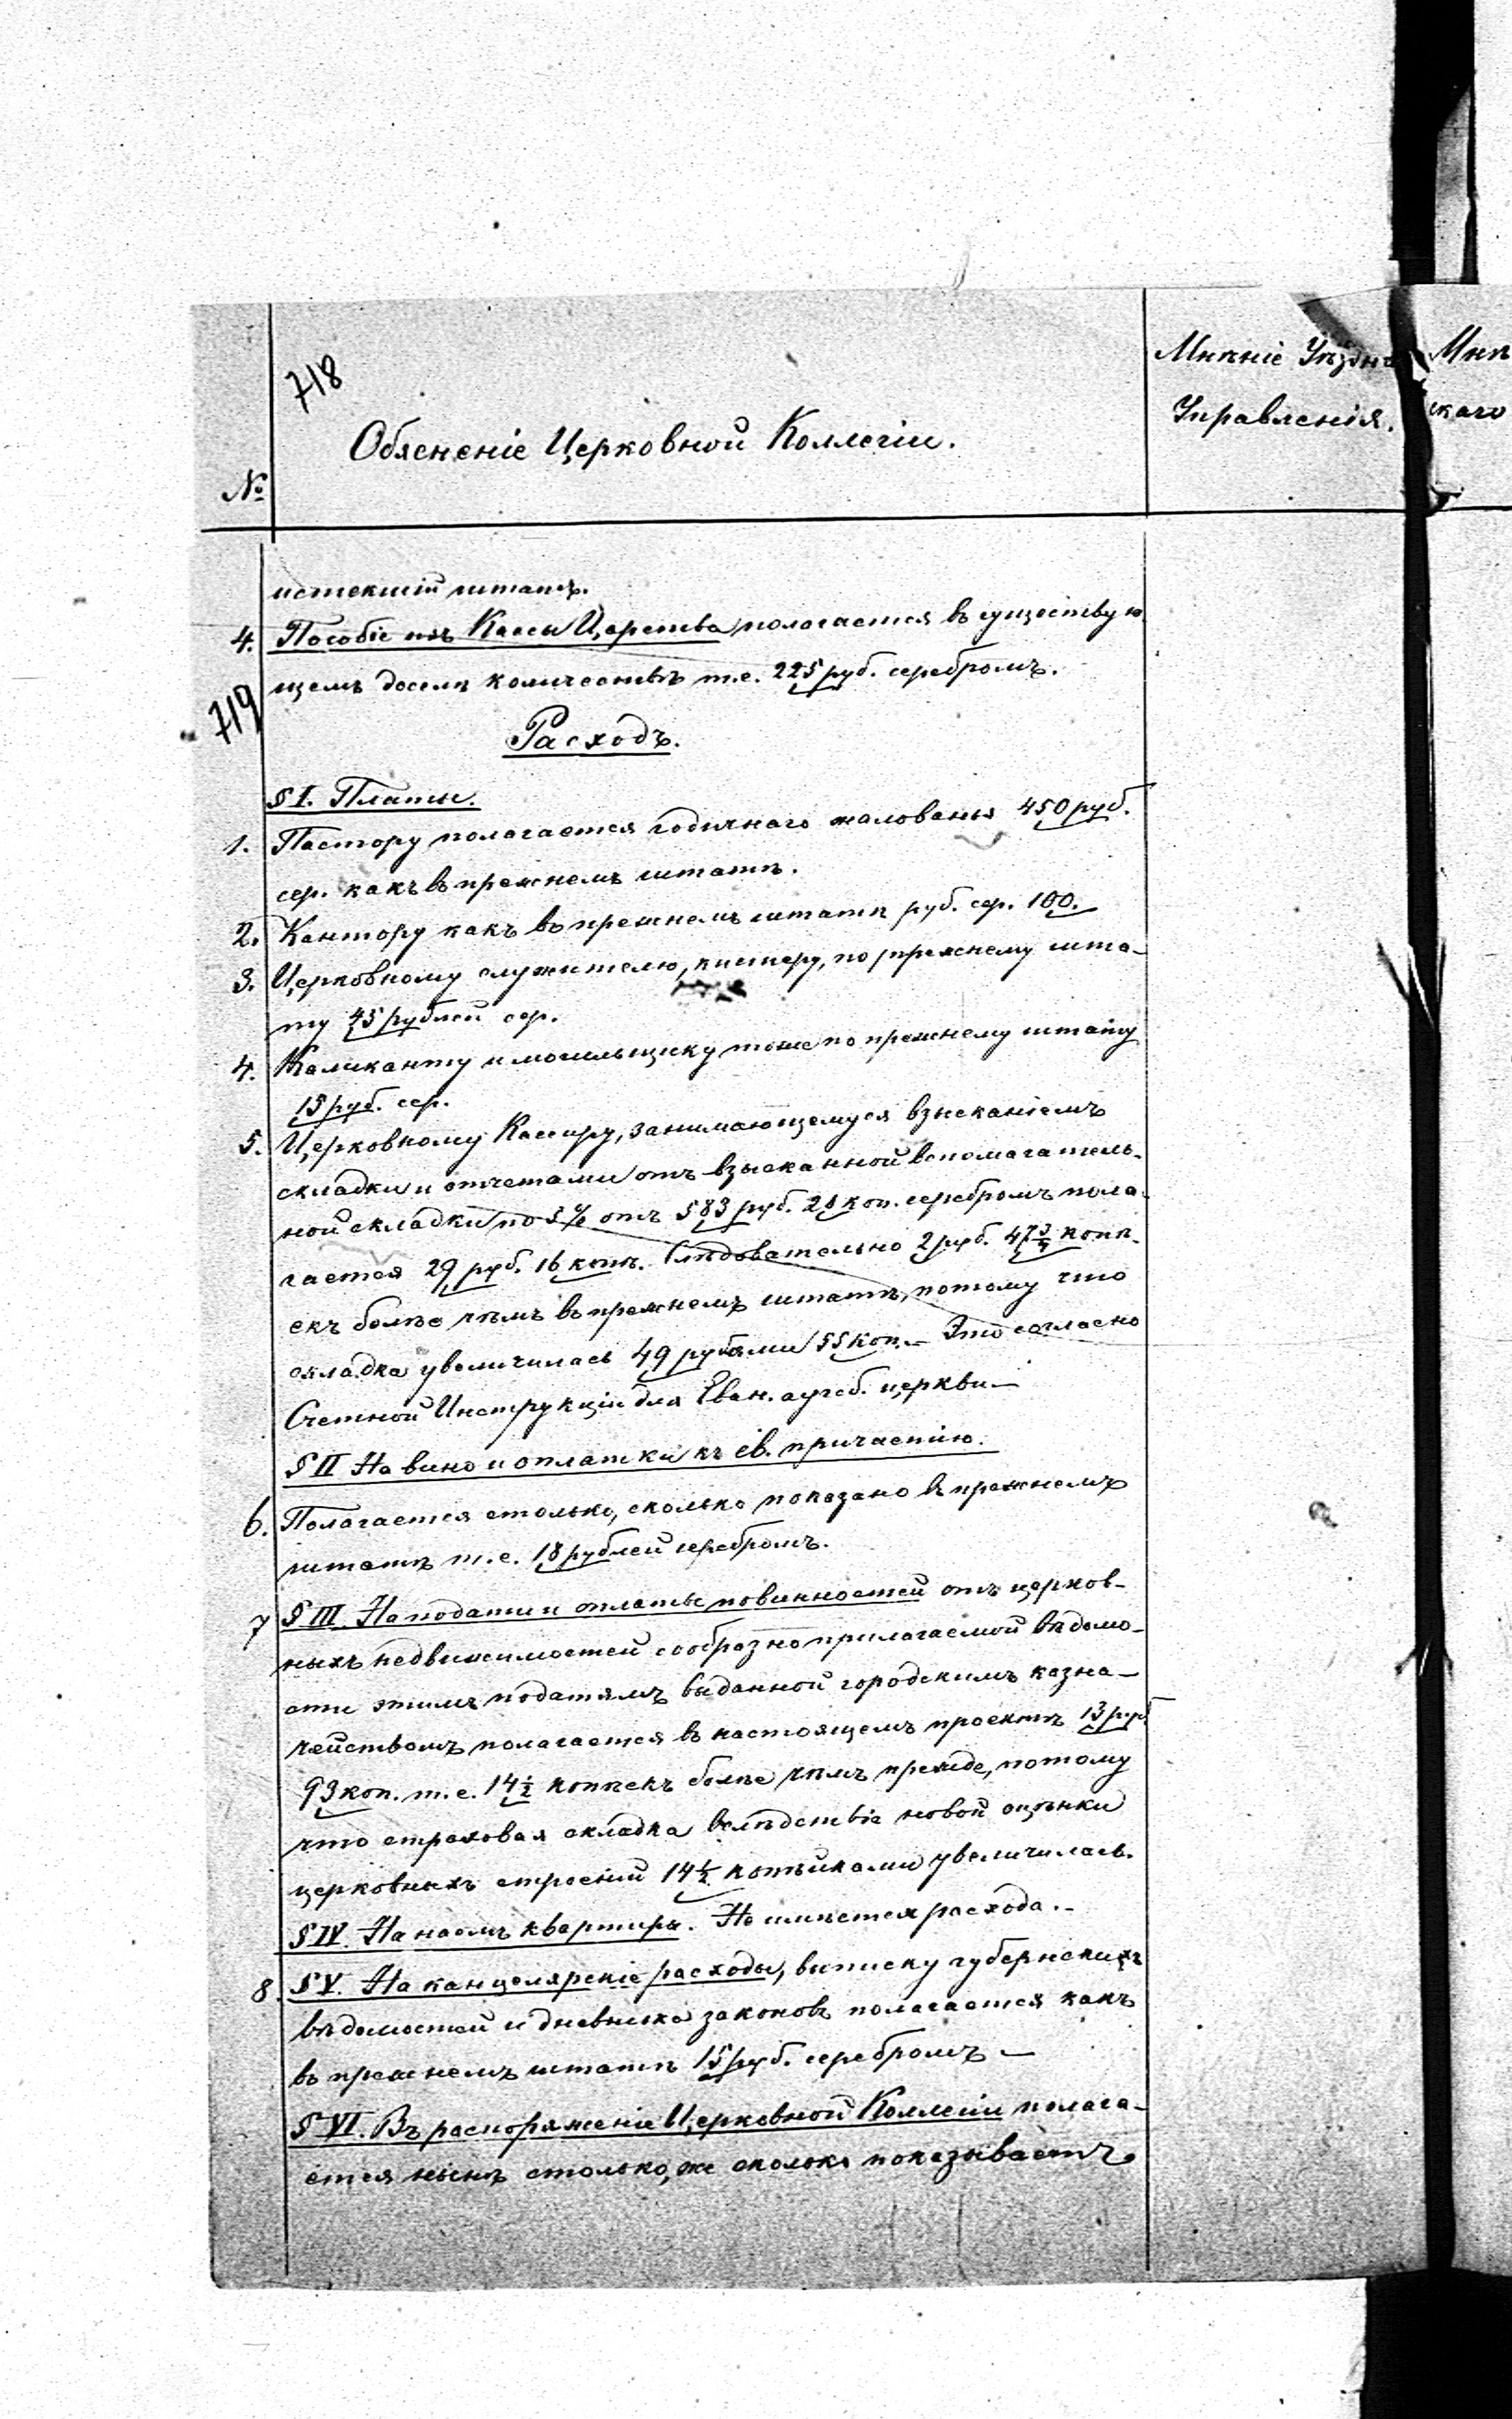 718
Мнѣніе Уѣздна
Управленія.
Мнѣ
скаго
Обясненіе Церковной Коллегіи.
№
истекшій штатъ.
4. Пособіе изъ Кассы Царства полагается въ существую
щемъ доселѣ количествѣ т.е. 225 руб. серебромъ.
719
Расходъ.
§ I. Платы.
1. Пастору полагается годичнаго жалованья 450 руб.
сер. какъ въ прежнемъ штатѣ.
2. Кантору какъ въ прежнемъ штатѣ руб. сер. 100.
3. Церковному служителю, кистеру, по прежнему шта-
ту 45 рублей сер.
4. Каликанту и могильщику тоже по прежнему штату
15 руб. сер.
5. Церковному Кассиру, занимающемуся взысканіемъ
складки и отчетами отъ взысканной вспомагатель-
ной складки по 5% отъ 583 руб. 28 коп. серебромъ пола-
гается 29 руб. 16 коп. Слѣдовательно 2 руб. 47 3/4 копѣ-
екъ болѣе чѣмъ въ прежнемъ штатѣ, потому что
складка увеличилась 49 рублями 55 коп. – Это согласно
Счетной Инструкціи для Еван. аугсб. церкви. –
§ II На вино и оплатки къ св. причастію.
6. Полагается столько, сколько показано въ прежнемъ
штатѣ т.е. 18 рублей серебромъ.
7 § III. На подати и оплаты повинностей отъ церков-
ныхъ недвижимостей сообразно прилагаемой вѣдомо-
сти этимъ податямъ выданной городскимъ казна-
чействомъ полагается въ настоящемъ проектѣ 13 руб
93 коп. т.е. 14 1/2 копѣекъ болѣе чѣмъ прежде, потому
что страховая складка вслѣдствіе новой оцѣнки
церковныхъ строеній 14 1/2 копѣйками увеличилась.
§ IV. На наемъ квартиры. Не имѣется расхода. –
8. § V. На канцелярскіе расходы, выписку губернскихъ
вѣдомостей и дневника законовъ полагается какъ
въ прежнемъ штатѣ 15 руб. серебромъ –
§ VI. Въ распоряженіе Церковной Коллегіи полага-
ется нынѣ столько, же сколько показываетъ